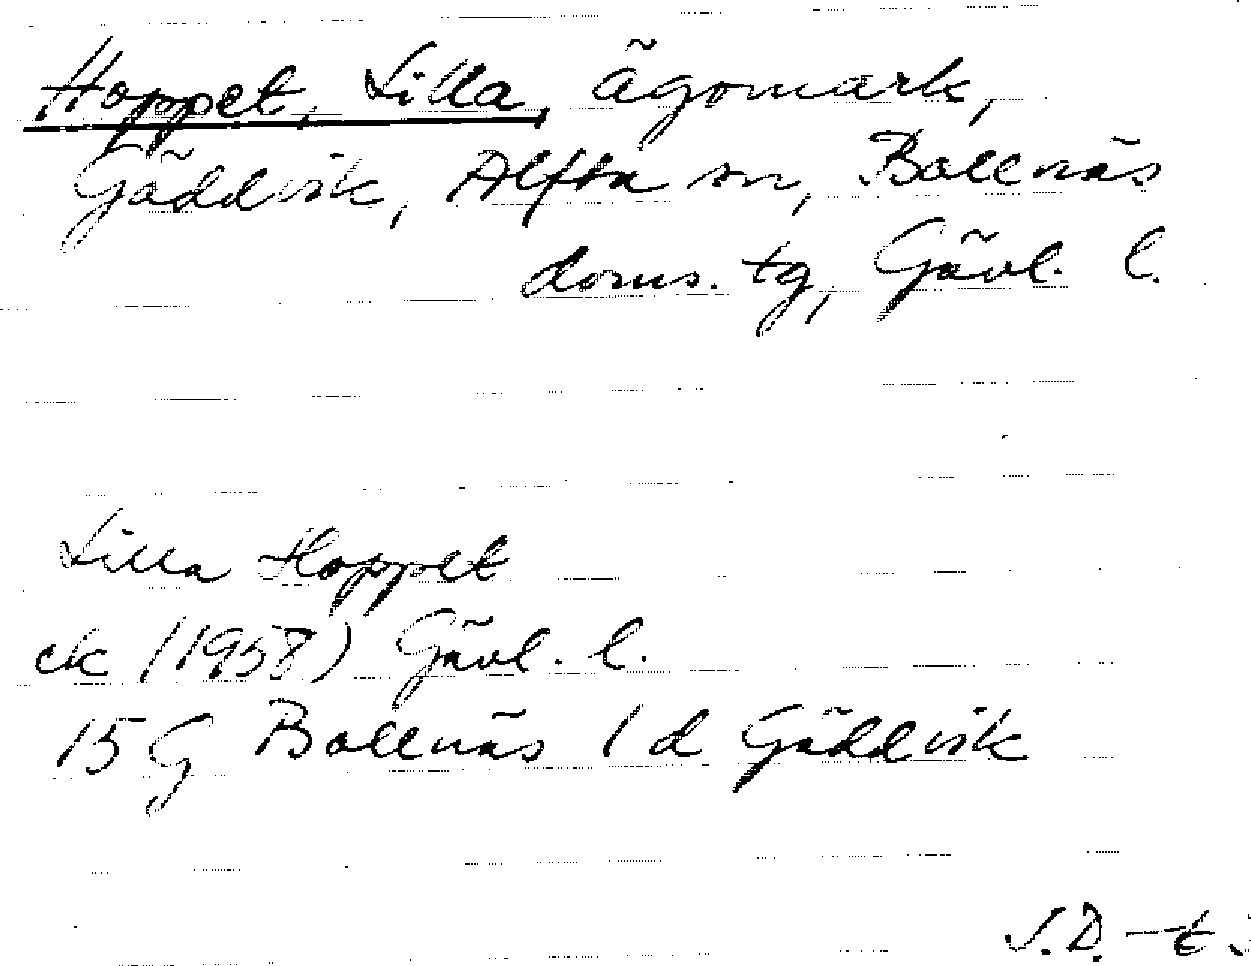 Hoppet, Lilla, ägomark,
Gäddvik, Alfta sn, Bollnäs
doms. tg, Gävl. l.
Lilla Hoppet
ek (1958) Gävl. l.
15G Bollnäs 1 d Gäddvik